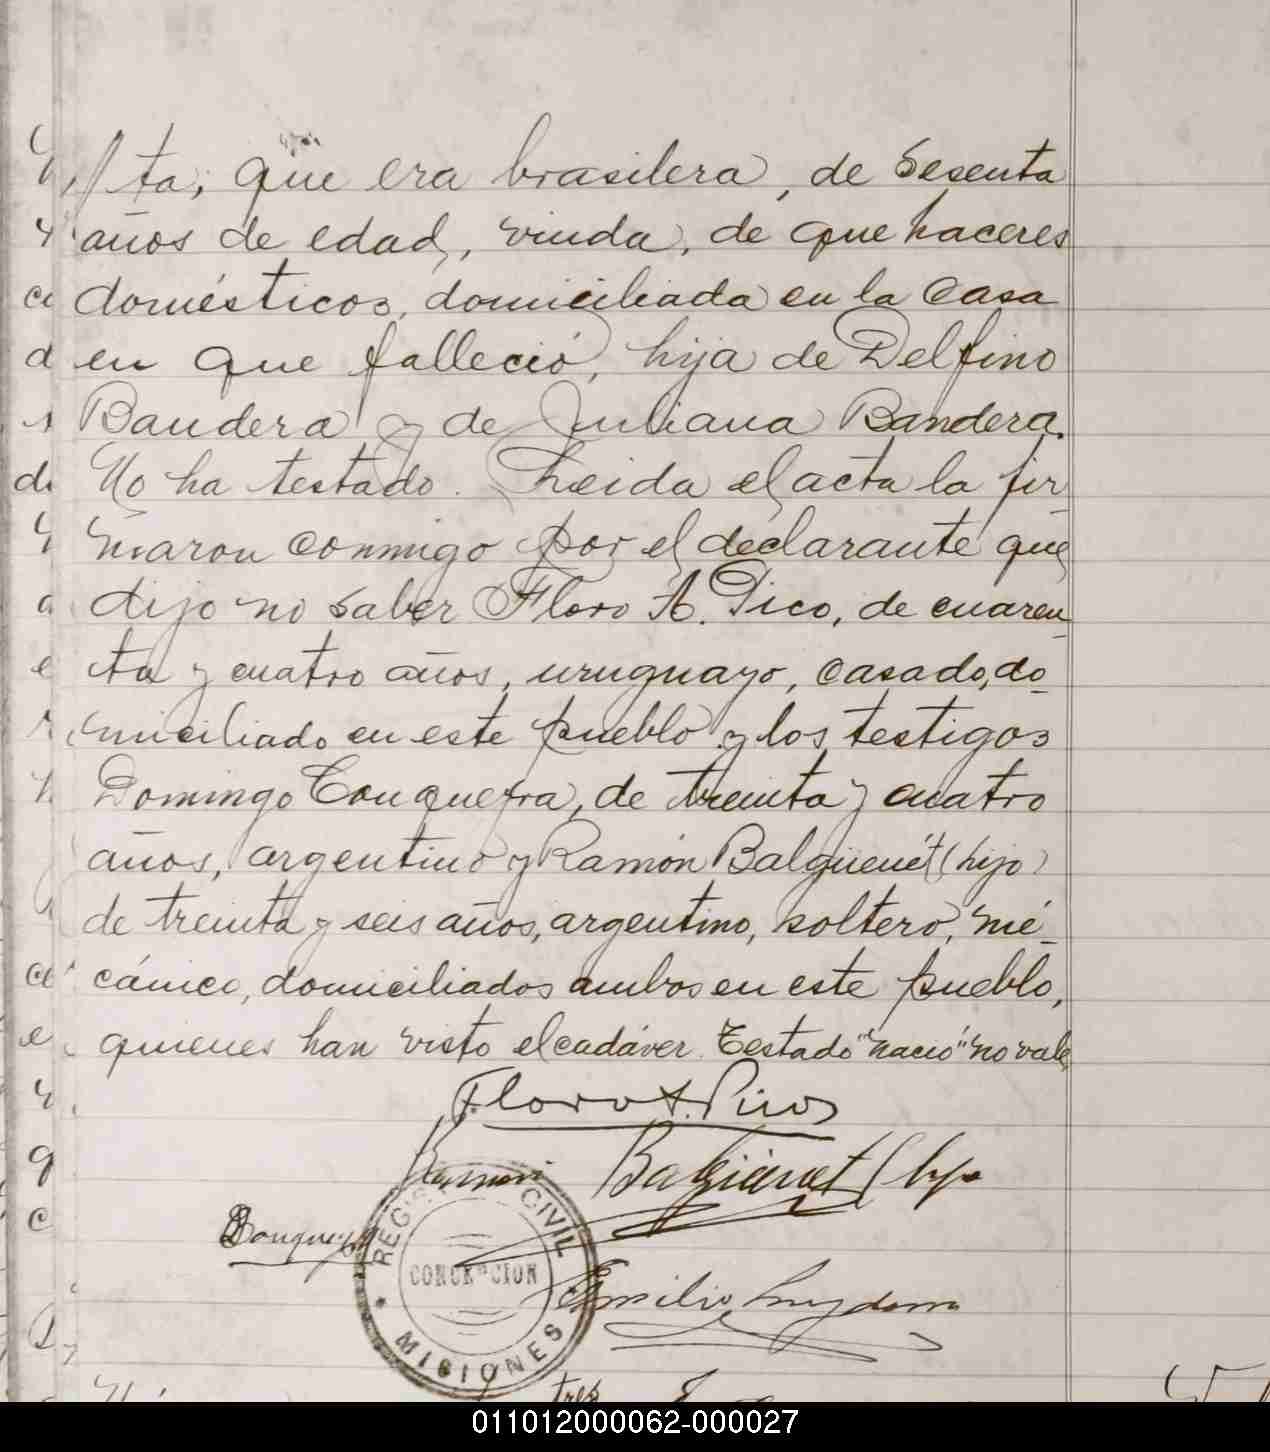 ta, que era brasilera, de sesenta
años de edad, viuda, de que haceres
domésticos, domiciliada en la casa
en que falleció, hija de Delfino
Bandera y de Juliana Bandera.
No ha testado. Leida el acta la fir-
maron conmigo por el declarante que
dijo no saber Floro A. Pico, de cuaren-
ta y cuatro años, uruguayo, casado, do-
miciliado en este pueblo y los testigos
Domingo de treinta y cuatro
años, argentino y Ramón Balguenet (hijo)
de treinta y seis años, argentino, soltero, me-
cánico, domiciliados ambos en este pueblo,
quienes han visto el cadáver. Testado "nació" no vale
Floro A. Pico
Ramón (hijo
REGIS CIVIL
CONCEPCION
Emilio
MISIONES
tres
011012000062-000027